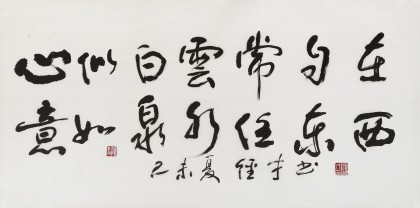 心似白雲常自在
意如泉水任东西
己未夏 书